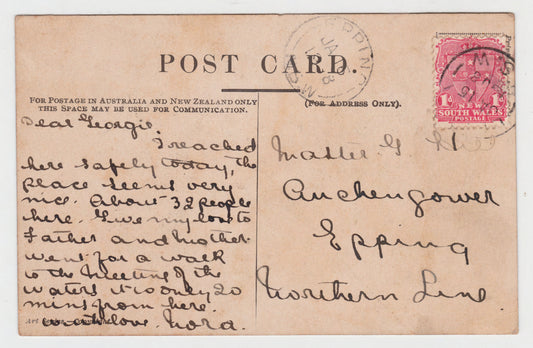 POST CARD.
FOR POSTAGE IN AUSTRALIA AND NEW ZEALAND ONLY
THIS SPACE MAY BE USED FOR COMMUNICATION.
(FOR ADDRESS ONLY).
EPPING
JA
8
N.S.W
1d NEW 1d
SOUTH WALES
POSTAGE
Dear Georgie,
I reached
here safely today, the
place seems very
nice. About 32 people
here. Give my love to
Father and Mother.
went for a walk
to the Meeting of the
Waters it is only 20
mins from here.
with love. Nora.
Master G
Auchengower
Epping
Northern Line